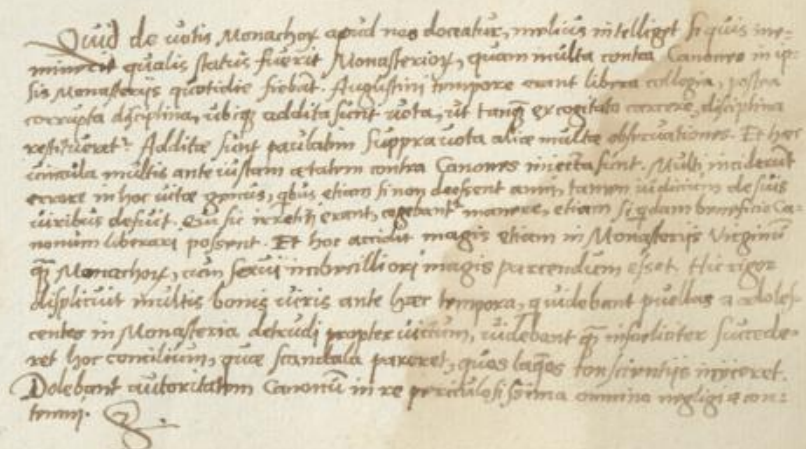 Quid de votis Monachoꝝ apud nos doceatur, melius intelliget si quis me-
minerit qualis status fuerit Monasterioꝝ, quam multa contra Canones in ip-
sis Monasterijs quotidie fiebāt. Augustini tempore erant libera collegia, postea
corrupta disciplina, ubiqꝫ addita sunt vota, ut tanqꝫ excogitato carcere, disciplina
restitueret᷑. Additæ sunt paulatim suppra vota aliæ multæ obseruationes. Et hæc
uincula multis ante iustam ætatem contra Canones iniecta sunt. Multi inciderūt
errore in hoc uitæ genus, qbus etiam si non deessent anni, tamen iudicium de suis
uiribus defuit. Qui sic irretiti erant, cogebant᷑ manere, etiam si qdam beneficio Ca-
nonum liberari possent. Et hoc accidit magis etiam in Monasterijs Virginū
qꝫ Monachoꝝ, cum sexui imbecilliori magis parcendum esset. Hic rigor
displicuit multis bonis uiris ante hæc tempora, q uidebant puellas & adoles-
centes in Monasteria detrudi propter uictum, uidebant qꝫ infœliciter succede-
ret hoc concilium, quæ scandala pareret, quos laqeos conscientijs inijceret.
Dolebant autoritatem Canonū in re periculosissima omnino negligi & con-
temni.